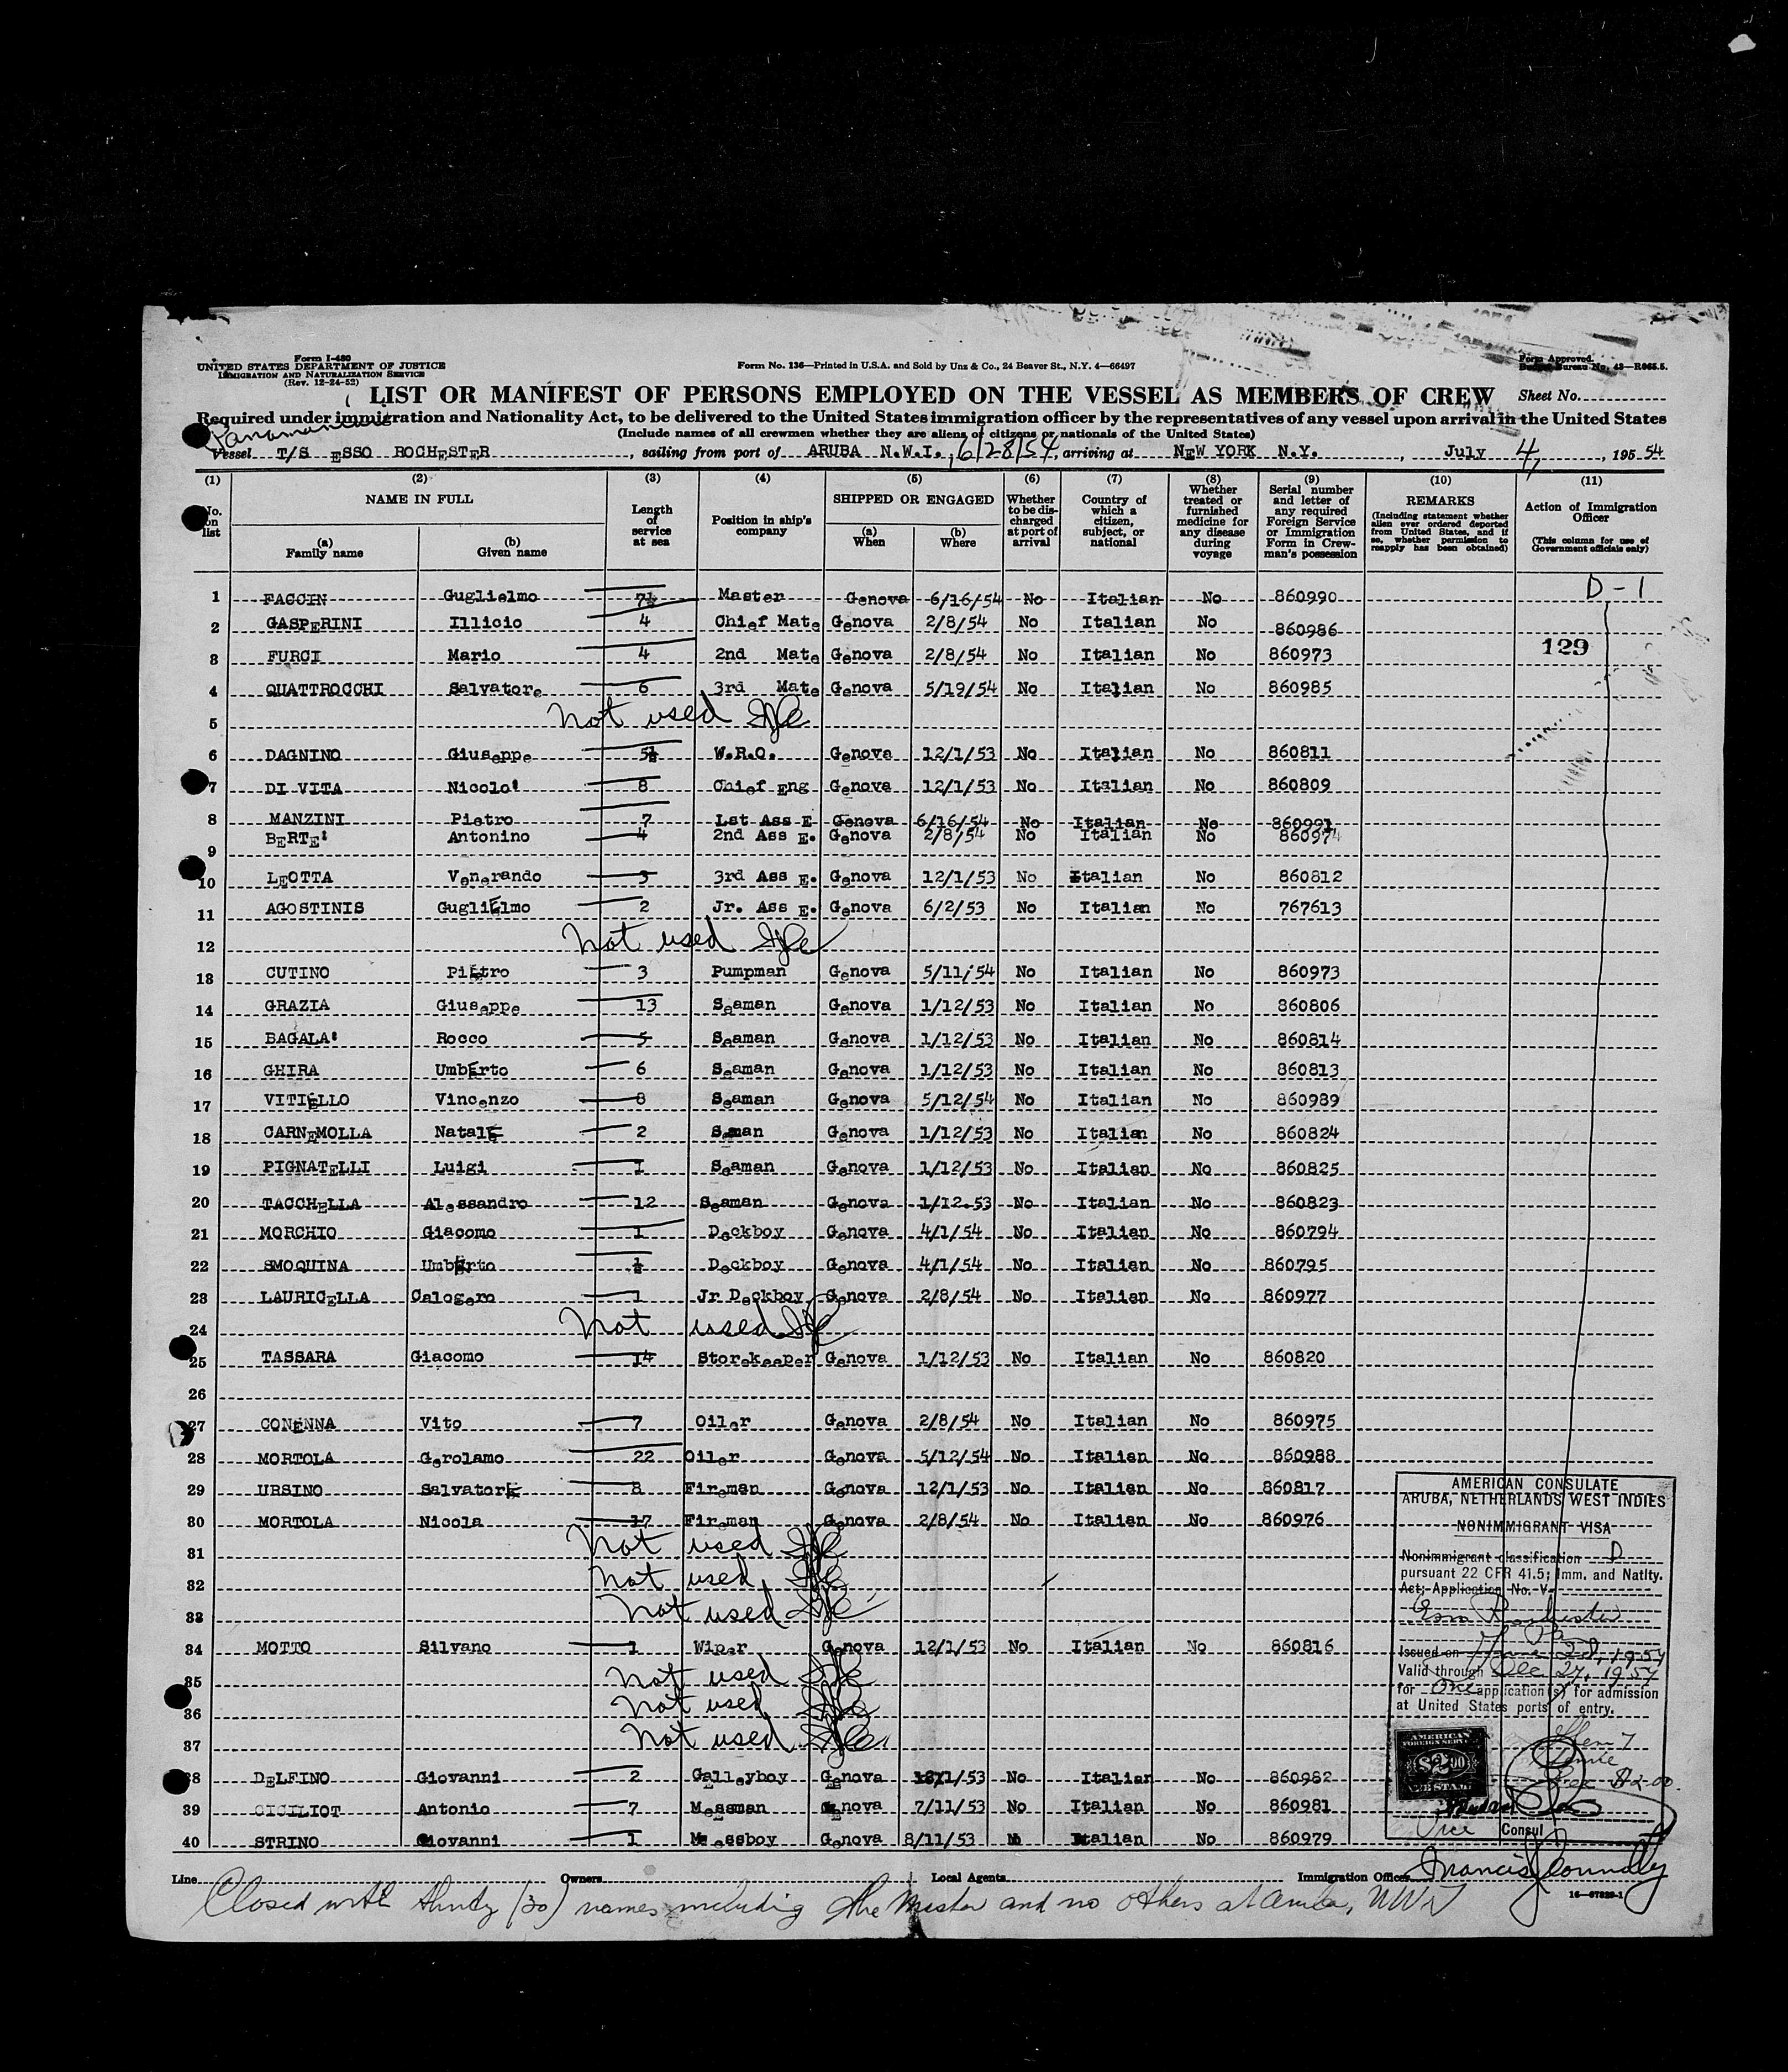 Form I-480
UNITED STATES DEPARTMENT OF JUSTICE
IMMIGRATION AND NATURALIZATION SERVICE
(Rev. 12-24-52)
Form No. 136—Printed in U.S.A. and Sold by Unz & Co., 24 Beaver St., N.Y. 4—66497
Form Approved.
Budget Bureau No. 43—R065.5.
LIST OR MANIFEST OF PERSONS EMPLOYED ON THE VESSEL AS MEMBERS OF CREW Sheet No.
Required under immigration and Nationality Act, to be delivered to the United States immigration officer by the representatives of any vessel upon arrival in the United States
(Include names of all crewmen whether they are aliens or citizens or nationals of the United States)
Panamanian
Vessel T/S ESSO ROCHESTER, sailing from port of ARUBA N.W.I., 6/28/54, arriving at NEW YORK N.Y., July 4, 1954
(1) (2) (3) (4) (5) (6) (7) (8) (9) (10) (11)
No. on list
NAME IN FULL
(a) Family name
(b) Given name
Length of service at sea
Position in ship's company
SHIPPED OR ENGAGED
(a) When
(b) Where
Whether to be discharged at port of arrival
Country of which a citizen, subject, or national
Whether treated or furnished medicine for any disease during voyage
Serial number and letter of any required Foreign Service or Immigration Form in Crewman's possession
REMARKS
(Including statement whether alien ever ordered deported from United States, and if so, whether permission to reapply has been obtained)
Action of Immigration Officer
(This column for use of Government officials only)
D-1
129
1 FACCIN Guglielmo 7½ Master Genova 6/16/54 No Italian No 860990
2 GASPERINI Illicio 4 Chief Mate Genova 2/8/54 No Italian No 860986
3 FURCI Mario 4 2nd Mate Genova 2/8/54 No Italian No 860973
4 QUATTROCCHI Salvatore 6 3rd Mate Genova 5/19/54 No Italian No 860985
5 Not used
6 DAGNINO Giuseppe 5½ W.R.O. Genova 12/1/53 No Italian No 860811
7 DI VITA Nicolo' 8 Chief Eng Genova 12/1/53 No Italian No 860809
8 MANZINI Pietro 7 Lst Ass E Genova 6/16/54 No Italian No 860991
9 BERTE' Antonino 4 2nd Ass E. Genova 2/8/54 No Italian No 860974
10 LEOTTA Venerando 3 3rd Ass E. Genova 12/1/53 No Italian No 860812
11 AGOSTINIS Guglielmo 2 Jr. Ass E. Genova 6/2/53 No Italian No 767613
12 Not used
13 CUTINO Pietro 3 Pumpman Genova 5/11/54 No Italian No 860973
14 GRAZIA Giuseppe 13 Seaman Genova 1/12/53 No Italian No 860806
15 BAGALA' Rocco 5 Seaman Genova 1/12/53 No Italian No 860814
16 GHIRA Umberto 6 Seaman Genova 1/12/53 No Italian No 860813
17 VITIELLO Vincenzo 8 Seaman Genova 5/12/54 No Italian No 860989
18 CARNEMOLLA Natale 2 Seman Genova 1/12/53 No Italian No 860824
19 PIGNATELLI Luigi 1 Seaman Genova 1/12/53 No Italian No 860825
20 TACCHELLA Alessandro 12 Seaman Genova 1/12.53 No Italian No 860823
21 MORCHIO Giacomo 1 Deckboy Genova 4/1/54 No Italian No 860794
22 SMOQUINA Umberto ½ Deckboy Genova 4/1/54 No Italian No 860795
23 LAURICELLA Calogero 1 Jr Deckboy Genova 2/8/54 No Italian No 860977
24 Not used
25 TASSARA Giacomo 14 Storekeeper Genova 1/12/53 No Italian No 860820
26
27 CONENNA Vito 7 Oiler Genova 2/8/54 No Italian No 860975
28 MORTOLA Gerolamo 22 Oiler Genova 5/12/54 No Italian No 860988
29 URSINO Salvatore 8 Fireman Genova 12/1/53 No Italian No 860817
30 MORTOLA Nicola 17 Fireman Genova 2/8/54 No Italian No 860976
31 Not used
32 Not used
33 Not used
34 MOTTO Silvano 1 Wiper Genova 12/1/53 No Italian No 860816
35 Not used
36 Not used
37 Not used
38 DELFINO Giovanni 2 Galleyboy Genova /1/53 No Italian No 860982
39 CICILIOT Antonio 7 Messman Genova 7/11/53 No Italian No 860981
40 STRINO Giovanni 1 Messboy Genova 8/11/53 N Italian No 860979
AMERICAN CONSULATE
ARUBA, NETHERLANDS WEST INDIES
NONIMMIGRANT VISA
Nonimmigrant classification D
pursuant 22 CFR 41.5; Imm. and Natlty.
Act; Application No. V-
Esso Rochester
Issued on June 28, 1954
Valid through Dec 27, 1954
for One application(s) for admission
at United States ports of entry.
AMERICAN
FOREIGN SERVICE
$2.00
Item 7
Fee $2.00
Vice Consul
Line Owners Local Agents Immigration Officer Francis J Connolly
16—67829-1
Closed with thirty (30) names including the Master and no others at Aruba, NWI